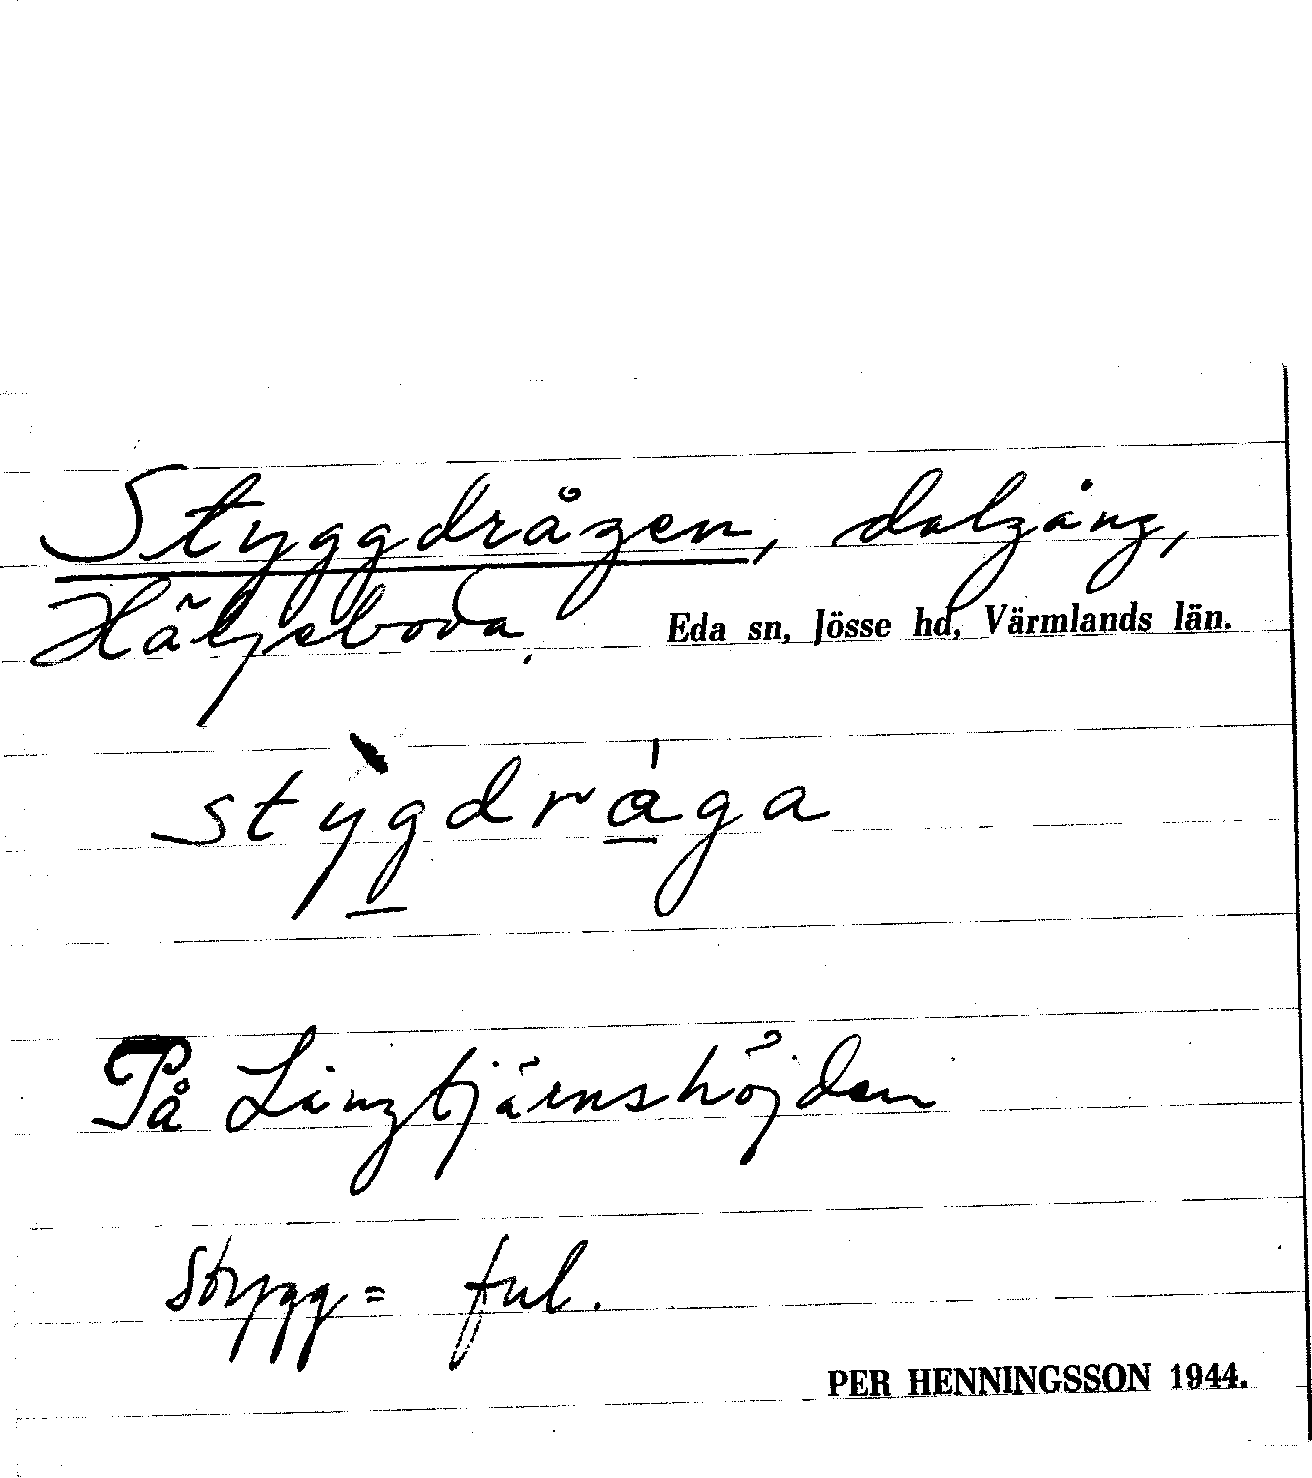 Styggdrågen, dalgång,
Häljeboda.
Eda sn, Jösse hd, Värmlands län.
stỳgdrága
På Långtjärnshöjden
Stygg = ful.
PER HENNINGSSON 1944.